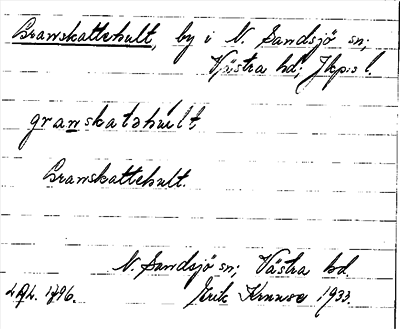 Granskattehult, by i N. Sandsjö sn;
Västra hd; Jkp:s l.
granskatəhult,
Granskattehult.
N. Sandsjö sn; Västra hd.
1796. Erik Kruuse 1933.